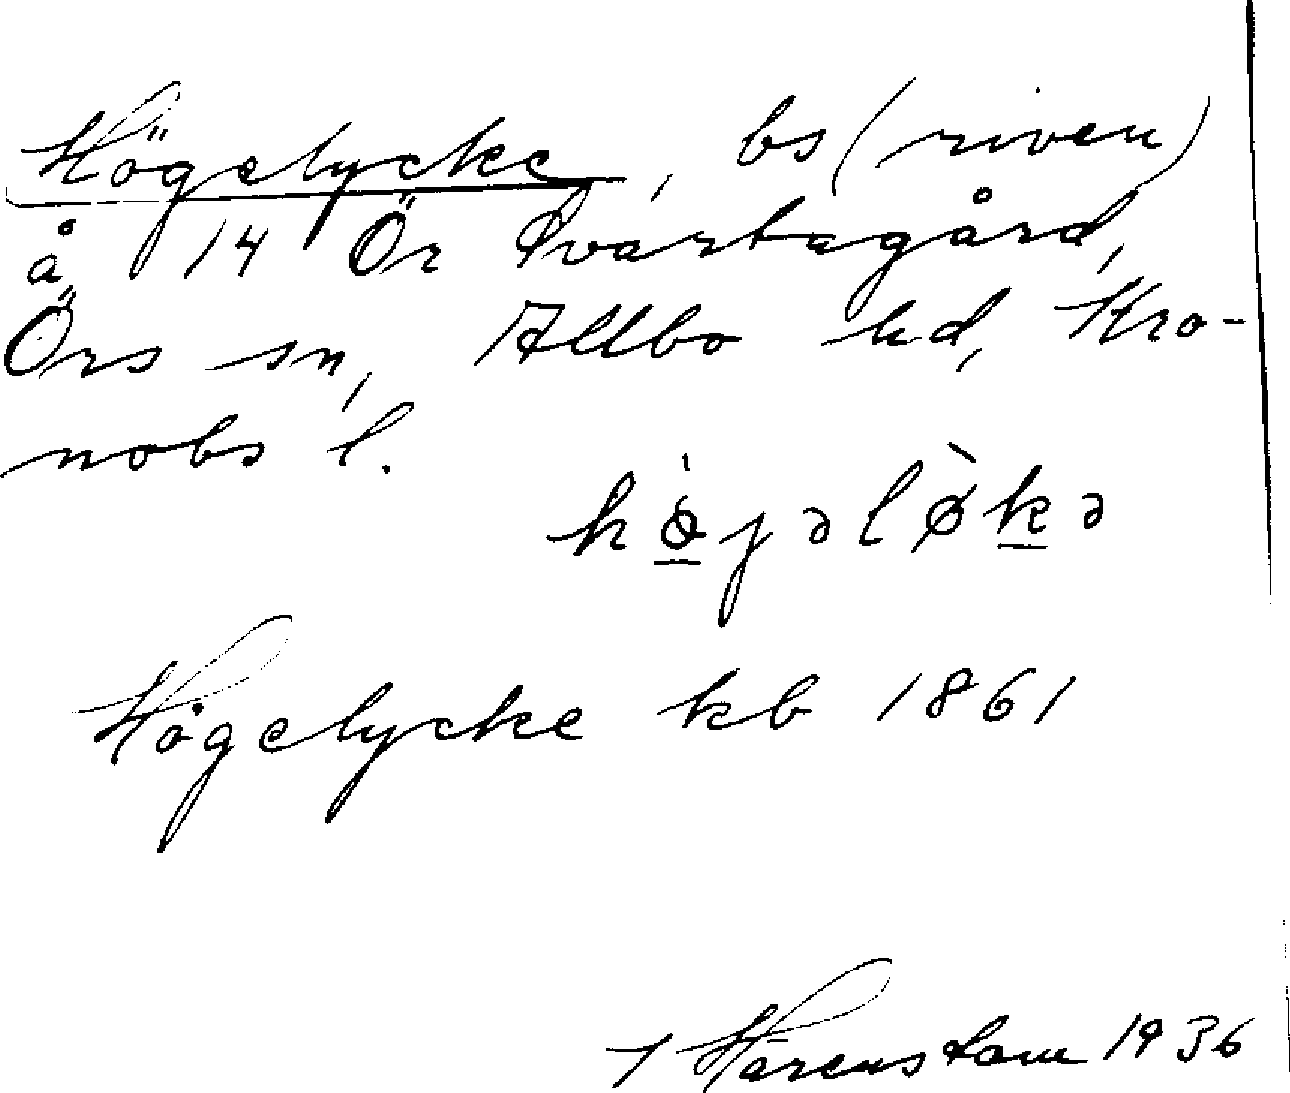 Högelycke, bs (riven)
å 14 Ör Svartagård,
Örs sn, Allbo hd, Kro-
nobs l.
Högelycke kb 1861
Härenstam 1936